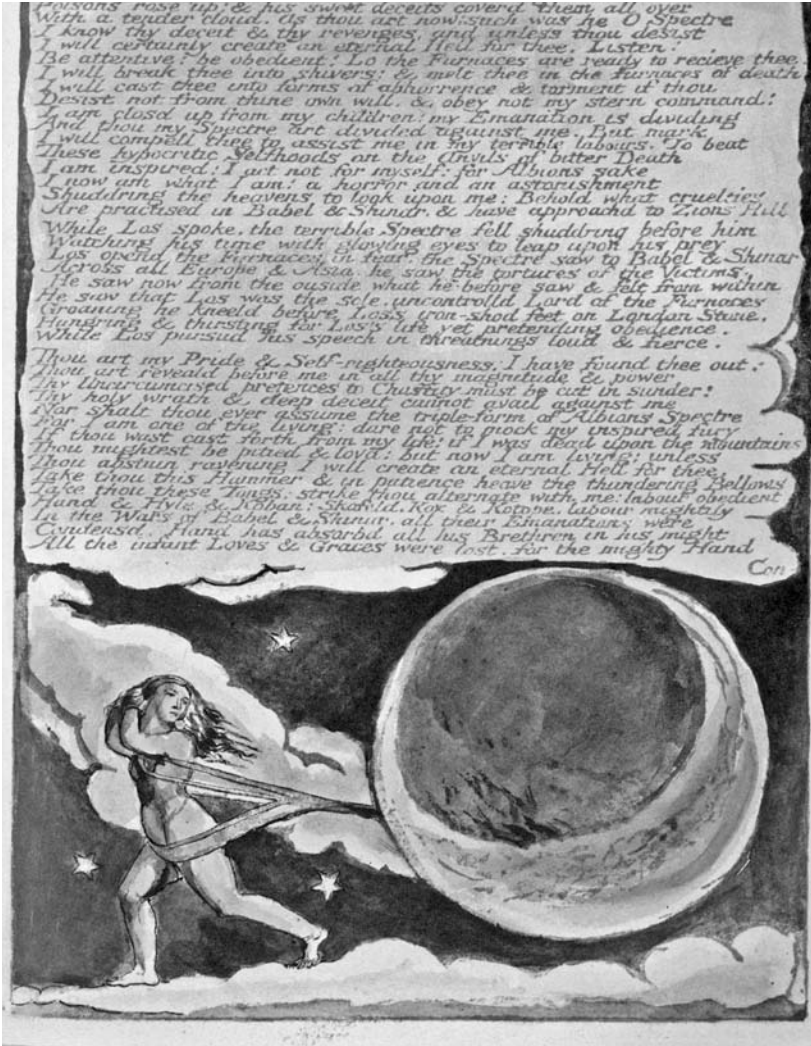 Poisons rose up, & his sweet deceits coverd them all over
With a tender cloud. As thou art now; such was he O Spectre
I know thy deceit & thy revenges, and unless thou desist
I will certainly create an eternal Hell for thee. Listen!
Be attentive! be obedient! Lo the Furnaces are ready to recieve thee.
I will break thee into shivers! & melt thee in the furnaces of death
I will cast thee into forms of abhorrence & torment if thou
Desist not from thine own will, & obey not my stern command:
I am closd up from my children! my Emanation is dividing
And thou my Spectre art divided against me. But mark
I will compell thee to assist me in my terrible labours. To beat
These hypocritic Selfhoods on the Anvils of bitter Death
I am inspired: I act not for myself: for Albions sake
I now am what I am: a horror and an astonishment
Shuddring the heavens to look upon me: Behold what cruelties
Are practised in Babel & Shinar, & have approachd to Zions Hill
While Los spoke, the terrible Spectre fell shuddring before him
Watching his time with glowing eyes to leap upon his prey
Los opend the Furnaces in fear, the Spectre saw to Babel & Shinar
Across all Europe & Asia, he saw the tortures of the Victims,
He saw now from the ouside what he before saw & felt from within
He saw that Los was the sole, uncontrolld Lord of the Furnaces
Groaning he kneeld before Los's iron-shod feet on London Stone,
Hungring & thirsting for Los's life yet pretending obedience.
While Los pursud his speech in threatnings loud & fierce.
Thou art my Pride & Self-righteousness: I have found thee out:
Thou art reveald before me in all thy magnitude & power
Thy Uncircumcised pretences to Chastity must be cut in sunder!
Thy holy wrath & deep deceit cannot avail against me
Nor shalt thou ever assume the triple-form of Albions Spectre
For I am one of the living: dare not to mock my inspired fury
If thou wast cast forth from my life! if I was dead upon the mountains
Thou mightest be pitied & lovd: but now I am living; unless
Thou abstain ravening I will create an eternal Hell for thee.
Take thou this Hammer & in patience heave the thundering Bellows
Take thou these Tongs: strike thou alternate with me: labour obedient
Hand & Hyle & Koban: Skofeld, Kox & Kotope, labour mightily
In the Wars of Babel & Shinar, all their Emanations were
Condensd. Hand has absorbd all his Brethren in his might
All the infant Loves & Graces were lost, for the mighty Hand
Con